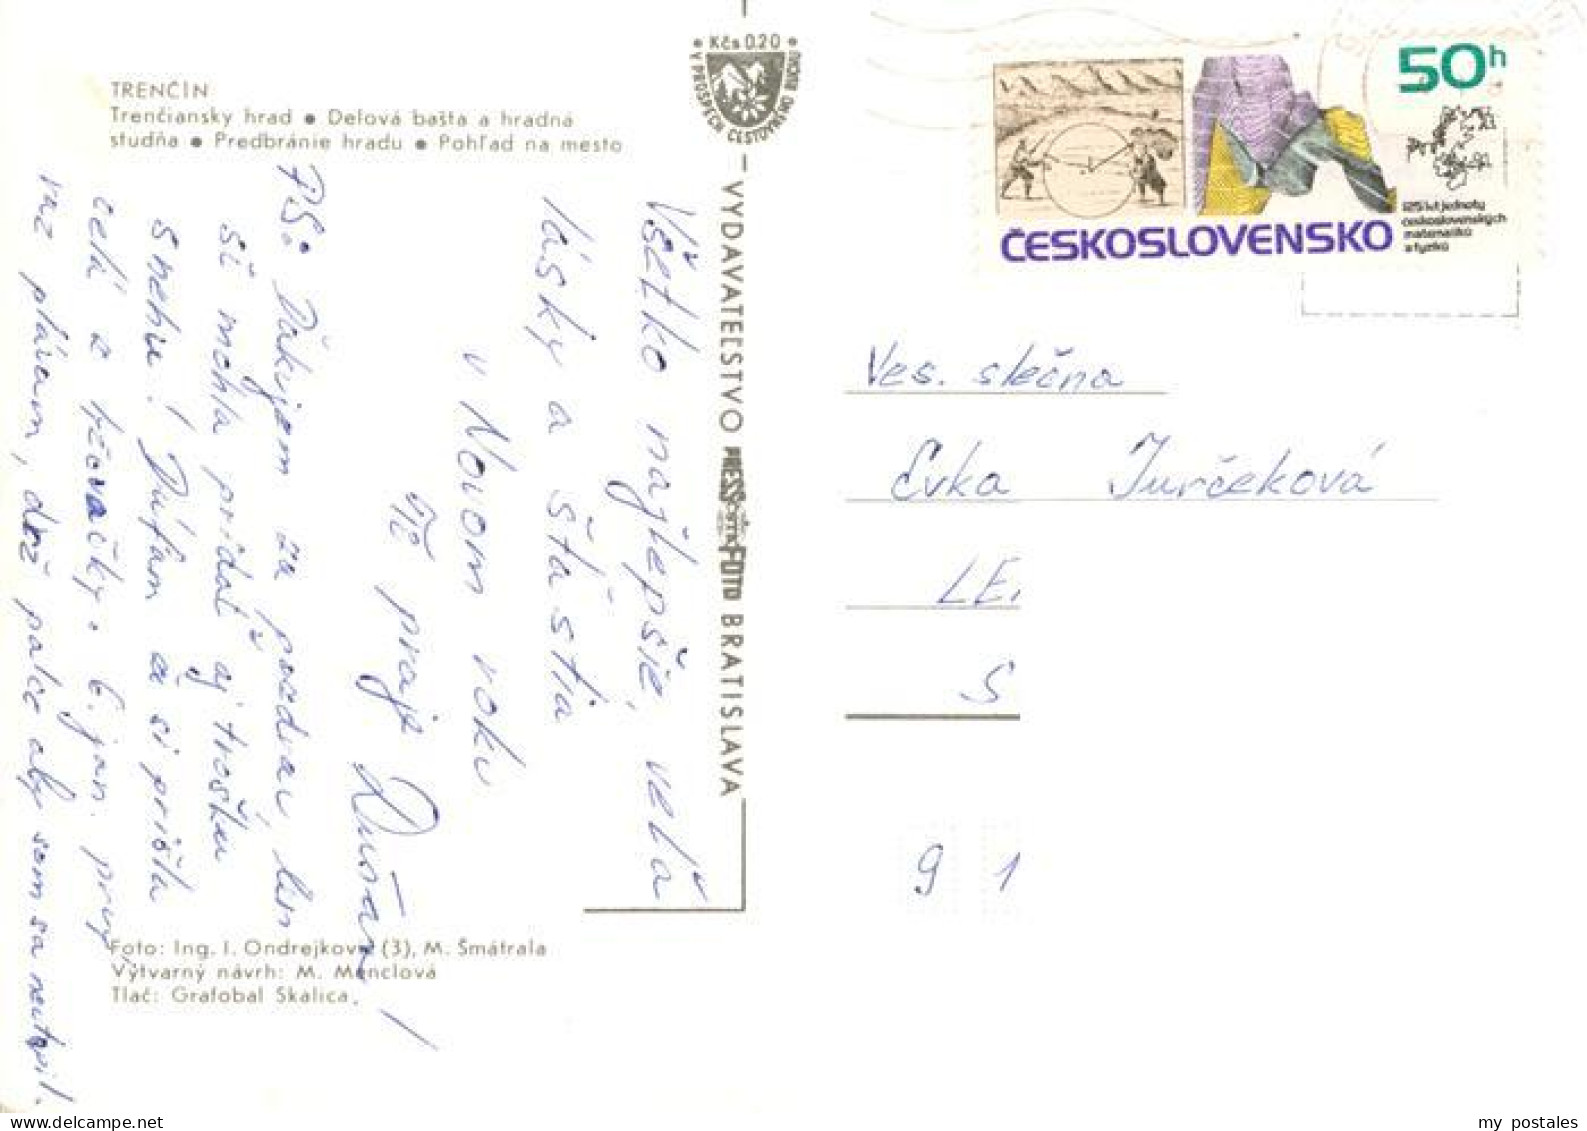 TRENČÍN
Trenčiansky hrad • Delová bašta a hradná
studňa • Predbránie hradu • Pohľad na mesto
• Kčs 0.20 •
V PROSPECH CESTOVNÉHO RUCHU
VYDAVATEĽSTVO PRESSFOTO BRATISLAVA
Všetko najlepšie, veľa
lásky a šťastia
v Novom roku
Ti praje Dušan!
PS: Ďakujem za pozdrav, len
si mohla pridať aj trošku
snehu! Dúfam a či prišla
celá z lyžovačky. 6. jan. prvý
raz plávam, drž palce aby som sa neutopil.
Foto: Ing. I. Ondrejková (3), M. Šmátrala
Výtvarný návrh: M. Menclová
Tlač: Grafobal Skalica.
50h
125 let jednoty
československých
matematiků
a fyziků
ČESKOSLOVENSKO
Ves. slečna
Evka Jurčeková
LE
S
9 1
my postales